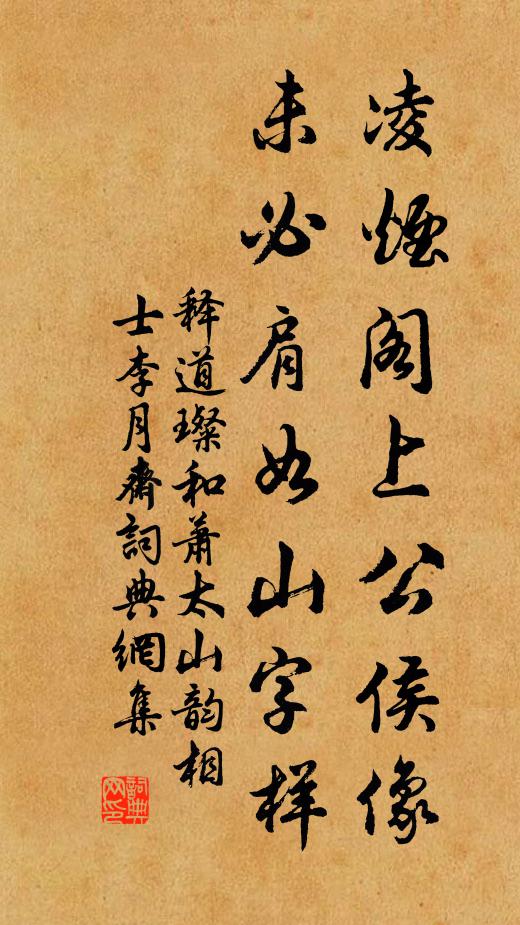 凌煙阁上公侯像
未必肩如山字样
释道璨和萧太山韵相
士李月齋詞典網集
詞典
网印